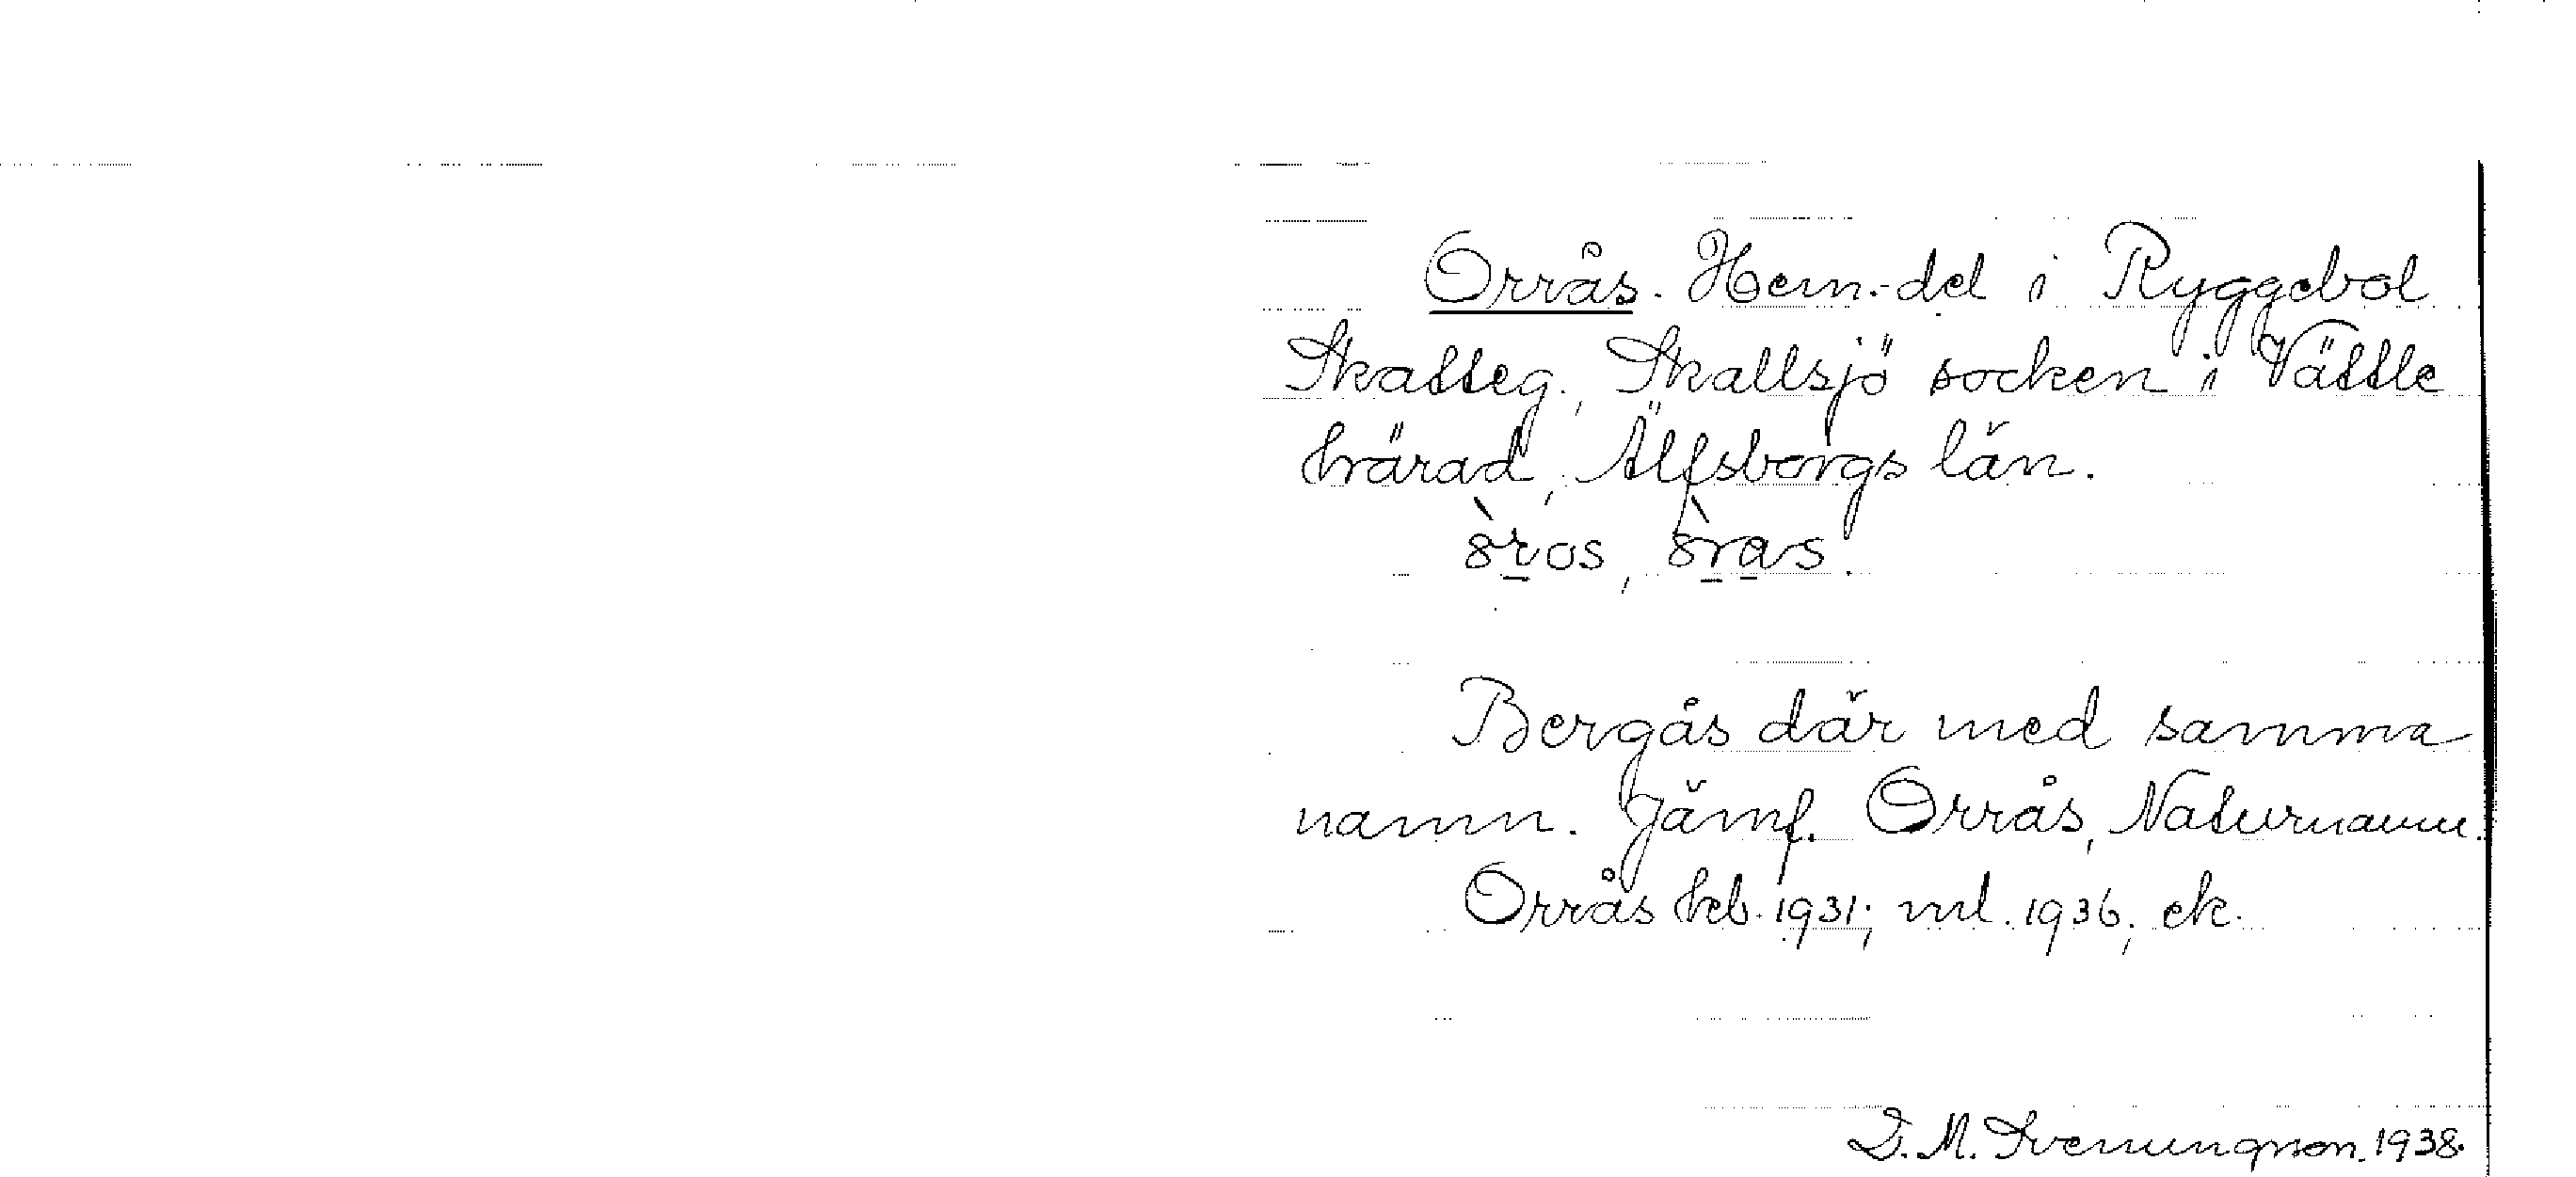 Orrås. Hem.-del i Ryggebol
Skatteg., Skallsjö socken i Vättle
härad, Älfsborgs län.
Bergås där med samma
namn. Jämf. Orrås, Naturnamn.
Orrås hfb. 1931; ml. 1936; ek.
D. M. Svenungson. 1938.